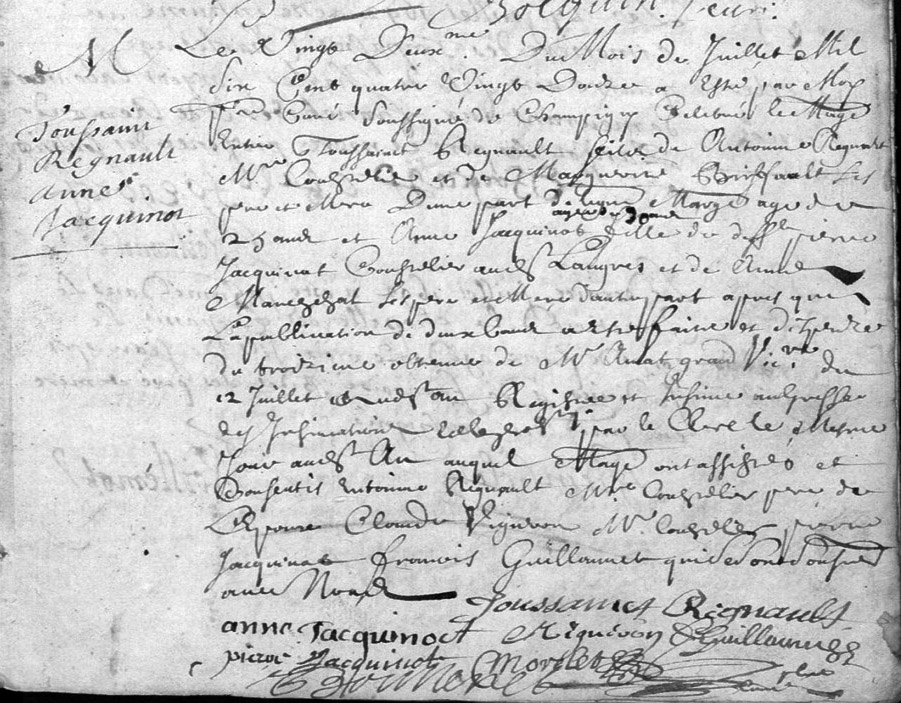 M
Toussaint
Regnault
anne
Jacquinot
Le Vingt Deuxme Du Mois de Juillet Mil
Six Cent quatre Vingt Douze a Esté par Moy
ptre Curé Soussigné de Champigny Celebré le Mage
Entre Toussaint Regnault fils de Antoinne Regnault
Mre Coustelier et de Margueritte les
pere et Mere Dune part agé de
25 ans et Anne Jacquinot fille de pierre
Jacquinot Coustelier aud Langres et de Anne
ses pere et Mere dautre part apres que
La publication de deux bans a esté faitte et dispence
du troizieme obtenue de Mr grand Vicre du
12 Juillet aud an Registré et Insinué au Greffe
des Insinuations par le Clerc le Mesme
Jour aud An auquel Mage ont assistés et
Consentis Antoinne Regnault Mre Coustelier pere de
Lespoux Claude Vigneron Mre Coustelier pierre
Jacquinot francois Guillaumet qui se sont soussignés
avec Nous
Toussainct Regnault
anne Jacquinoct Guillaumet
pierre Jacquinot